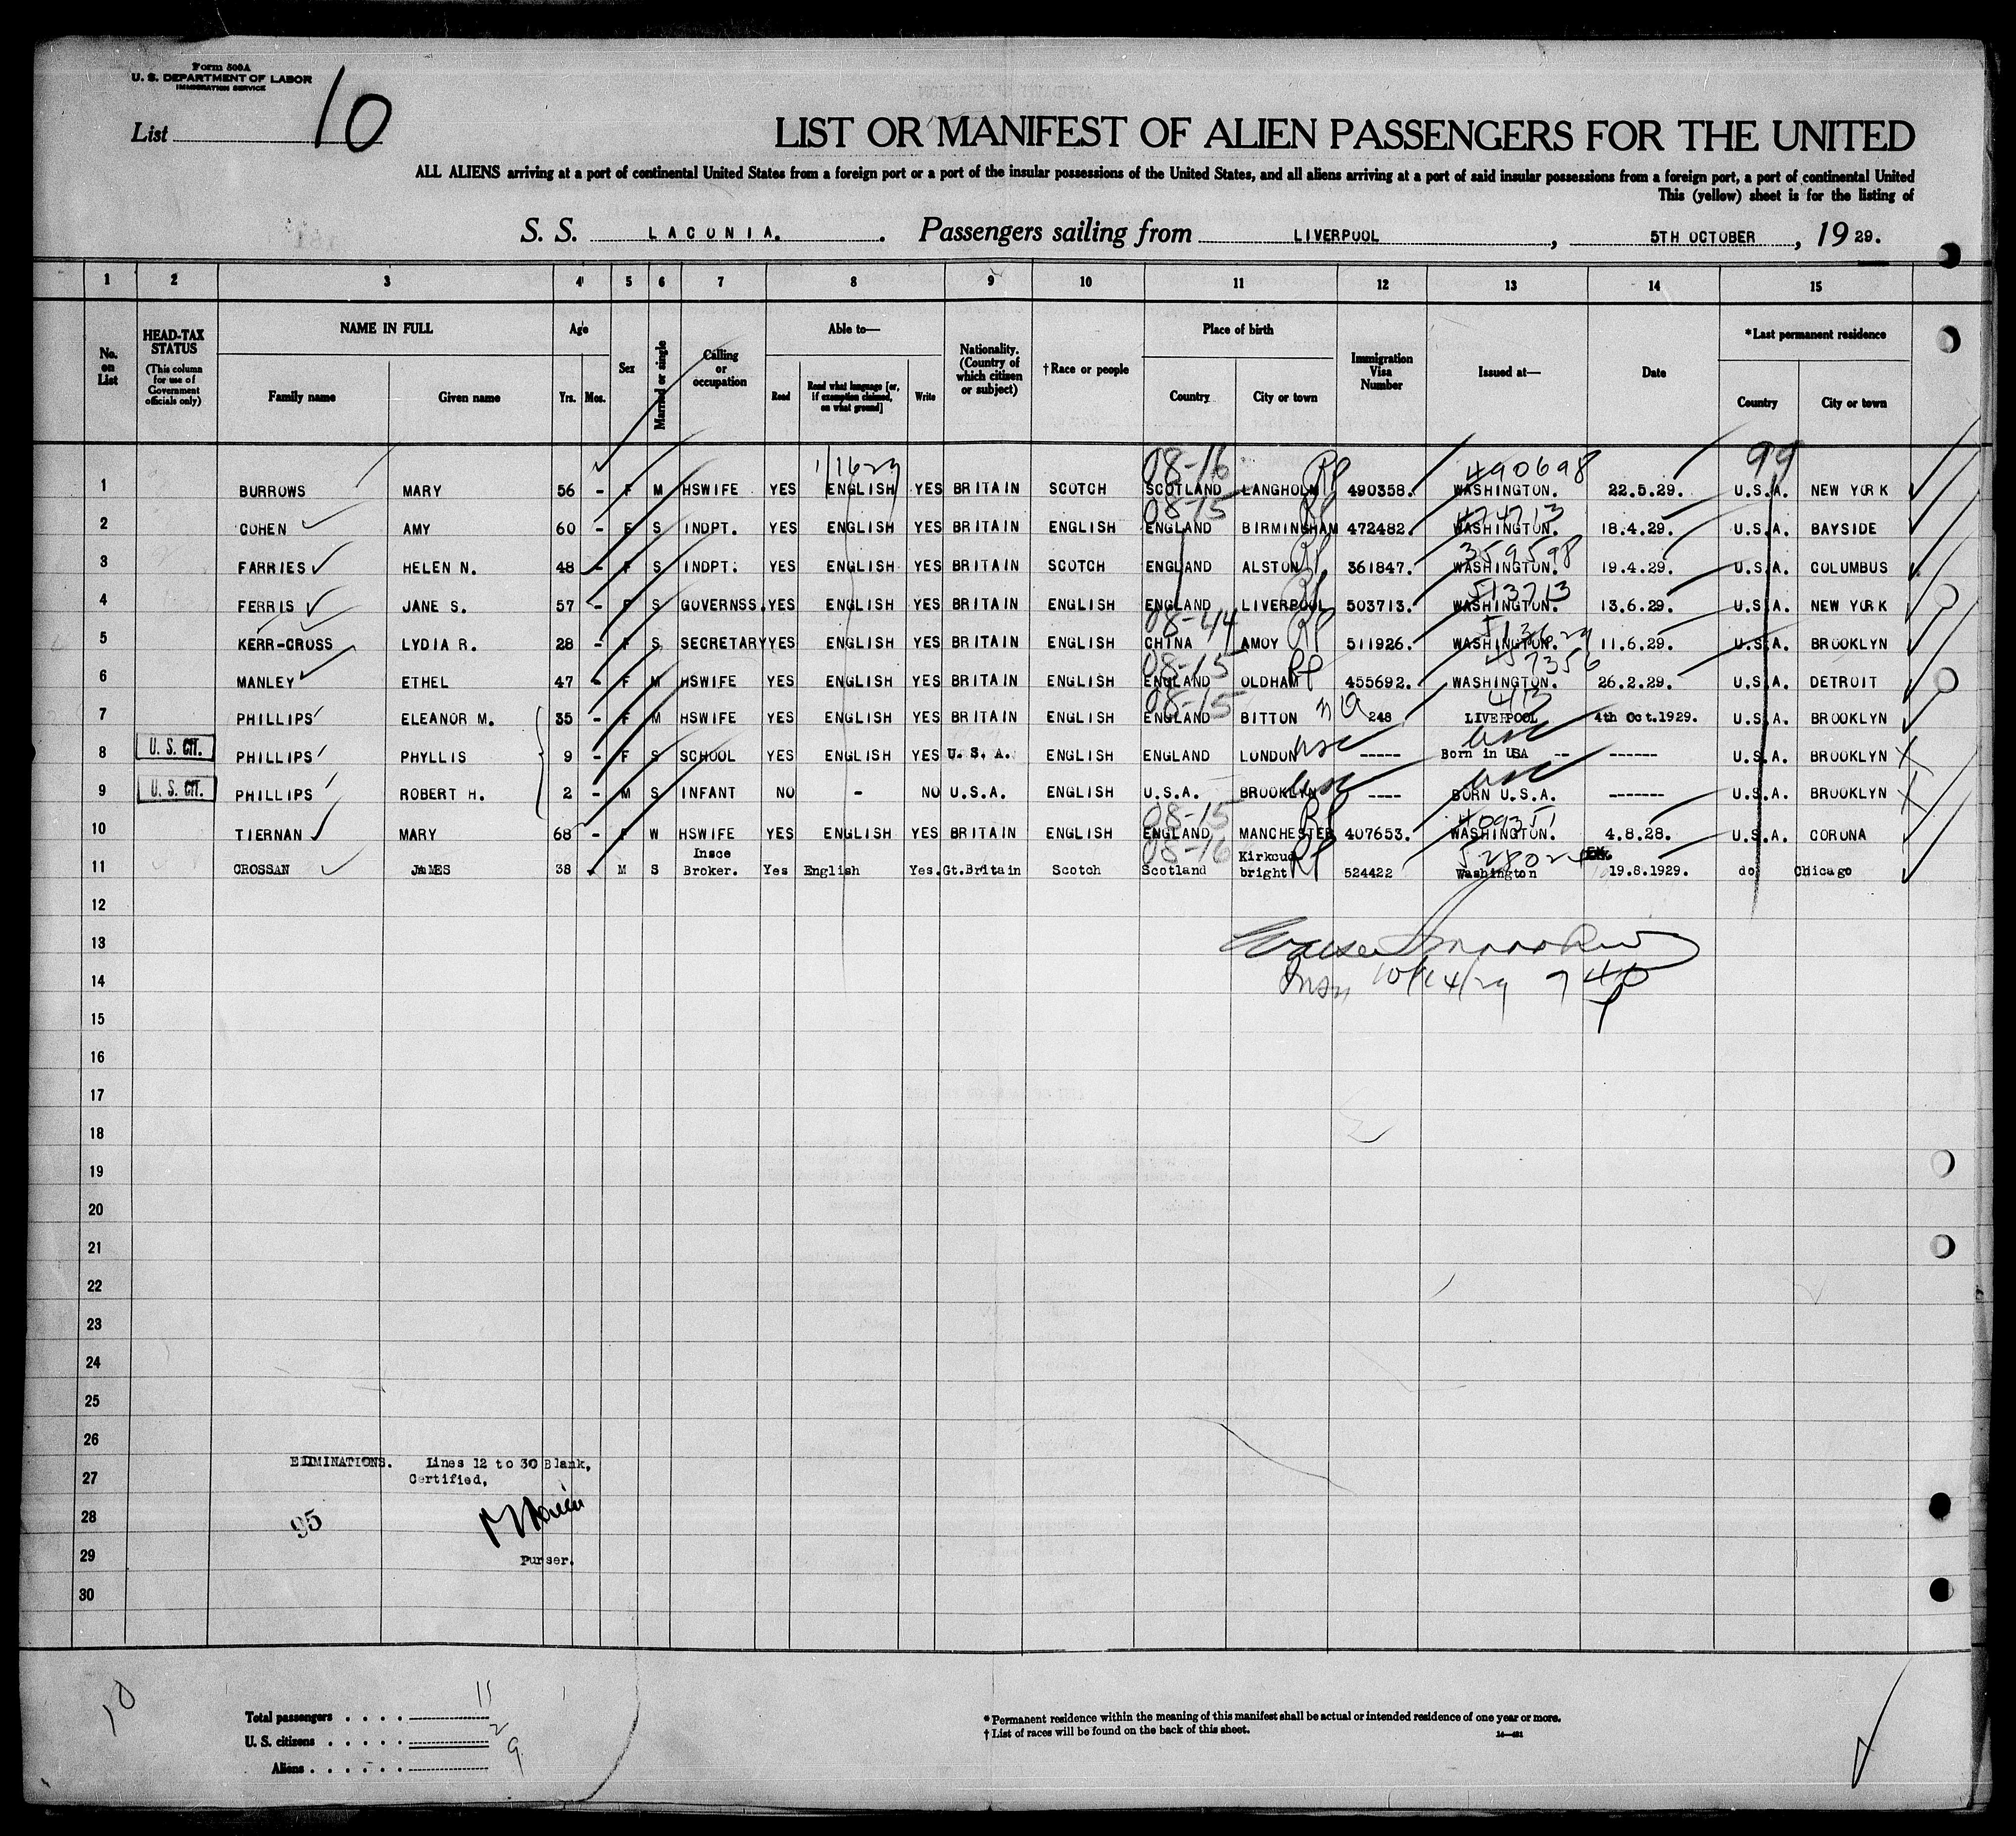 Form 500A
U. S. DEPARTMENT OF LABOR
IMMIGRATION SERVICE
List 10
LIST OR MANIFEST OF ALIEN PASSENGERS FOR THE UNITED
ALL ALIENS arriving at a port of continental United States from a foreign port or a port of the insular possessions of the United States, and all aliens arriving at a port of said insular possessions from a foreign port, a port of continental United
This (yellow) sheet is for the listing of
S. S. LACONIA. Passengers sailing from LIVERPOOL, 5TH OCTOBER, 19 29.
1 2 3 4 5 6 7 8 9 10 11 12 13 14 15
No. on List
HEAD-TAX STATUS
(This column for use of Government officials only)
NAME IN FULL
Family name Given name
Age
Yrs. Mos.
Sex
Married or single
Calling or occupation
Able to—
Read Read what language [or, if exemption claimed, on what ground] Write
Nationality. (Country of which citizen or subject)
†Race or people
Place of birth
Country City or town
Immigration Visa Number
Issued at—
Date
*Last permanent residence
Country City or town
08-16 490698 99
1 BURROWS MARY 56 - F M HSWIFE YES ENGLISH YES BRITAIN SCOTCH SCOTLAND LANGHOLM 490358. WASHINGTON. 22.5.29. U.S.A. NEW YORK
08-15 474713
2 COHEN AMY 60 - F S INDPT. YES ENGLISH YES BRITAIN ENGLISH ENGLAND BIRMINGHAM 472482. WASHINGTON. 18.4.29. U.S.A. BAYSIDE
359598
3 FARRIES HELEN N. 48 - F S INDPT. YES ENGLISH YES BRITAIN SCOTCH ENGLAND ALSTON 361847. WASHINGTON. 19.4.29. U.S.A. COLUMBUS
513713
4 FERRIS JANE S. 57 - F S GOVERNSS. YES ENGLISH YES BRITAIN ENGLISH ENGLAND LIVERPOOL 503713. WASHINGTON. 13.6.29. U.S.A. NEW YORK
08-44
5 KERR-CROSS LYDIA R. 28 - F S SECRETARY YES ENGLISH YES BRITAIN ENGLISH CHINA AMOY 511926. WASHINGTON. 11.6.29. U.S.A. BROOKLYN
08-15 457356
6 MANLEY ETHEL 47 - F M HSWIFE YES ENGLISH YES BRITAIN ENGLISH ENGLAND OLDHAM 455692. WASHINGTON. 26.2.29. U.S.A. DETROIT
08-15 413
7 PHILLIPS ELEANOR M. 35 - F M HSWIFE YES ENGLISH YES BRITAIN ENGLISH ENGLAND BITTON 248 LIVERPOOL 4th Oct.1929. U.S.A. BROOKLYN
8 U. S. CIT. PHILLIPS PHYLLIS 9 - F S SCHOOL YES ENGLISH YES U.S.A. ENGLISH ENGLAND LONDON usc ----- Born in USA -- ------ U.S.A. BROOKLYN
9 U. S. CIT. PHILLIPS ROBERT H. 2 - M S INFANT NO - NO U.S.A. ENGLISH U.S.A. BROOKLYN usc ---- BORN U.S.A. ------- U.S.A. BROOKLYN
08-15 409351
10 TIERNAN MARY 68 - F W HSWIFE YES ENGLISH YES BRITAIN ENGLISH ENGLAND MANCHESTER 407653. WASHINGTON. 4.8.28. U.S.A. CORONA
08-16
11 CROSSAN JAMES 38 M S Insce Broker. Yes English Yes. Gt.Britain Scotch Scotland Kirkcudbright 524422 Washington 19.8.1929. do Chicago
12
13
14 10/14/29
15
16
17
18
19
20
21
22
23
24
25
26
ELIMINATIONS. Lines 12 to 30 Blank,
27 Certified,
28 95
29 Purser.
30
10
Total passengers . . . . 11
U. S. citizens . . . . . 2
Aliens . . . . . . 9
* Permanent residence within the meaning of this manifest shall be actual or intended residence of one year or more.
† List of races will be found on the back of this sheet.